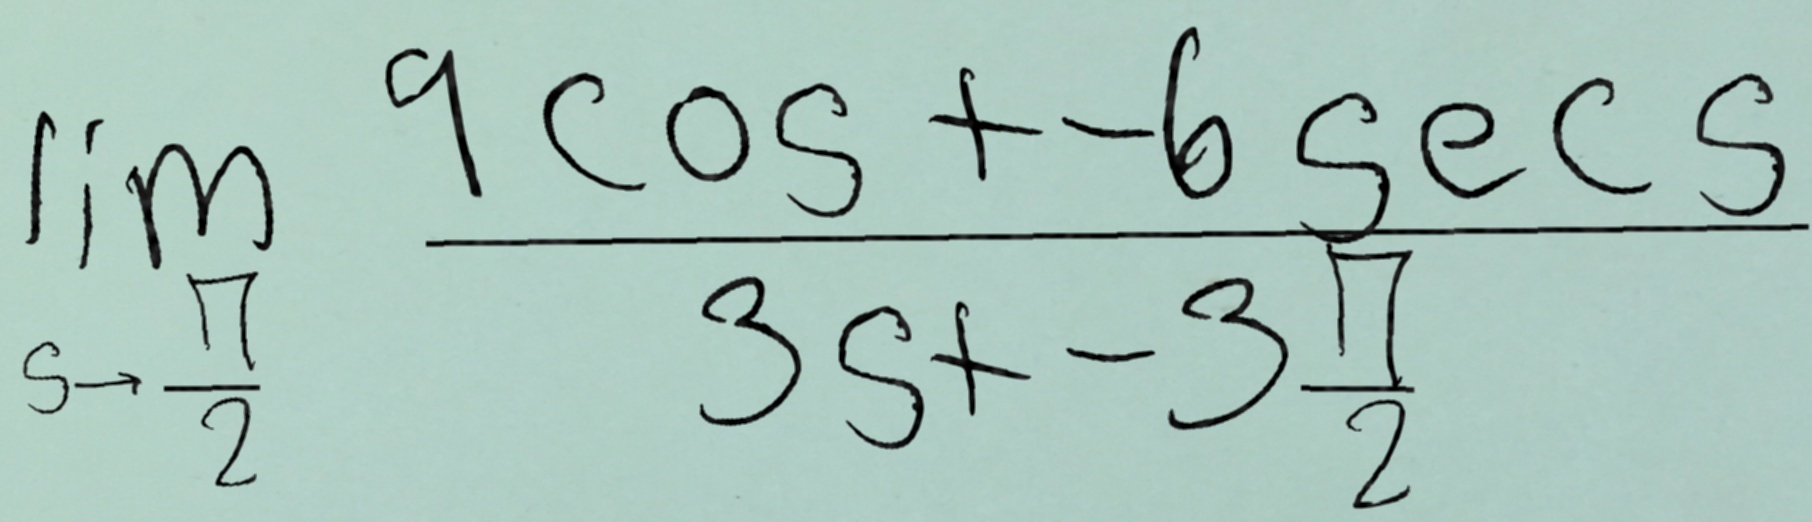 \lim_{s \to \frac{\pi}{2}} \frac{9 \cos + -6 \sec s}{3s + -3 \frac{\pi}{2}}